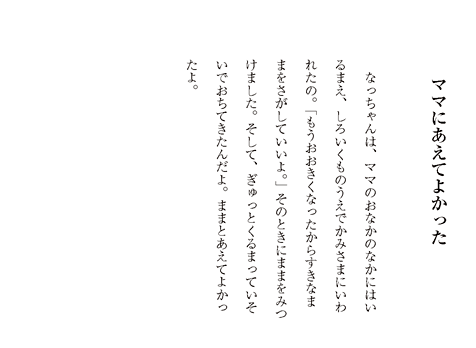 ママにあえてよかった
なっちゃんは、ママのおなかのなかにはい
るまえ、しろいくものうえでかみさまにいわ
れたの。「もうおおきくなったからすきなま
まをさがしていいよ。」そのときにままをみつ
けました。そして、ぎゅっとくるまっていそ
いでおちてきたんだよ。ままとあえてよかっ
たよ。